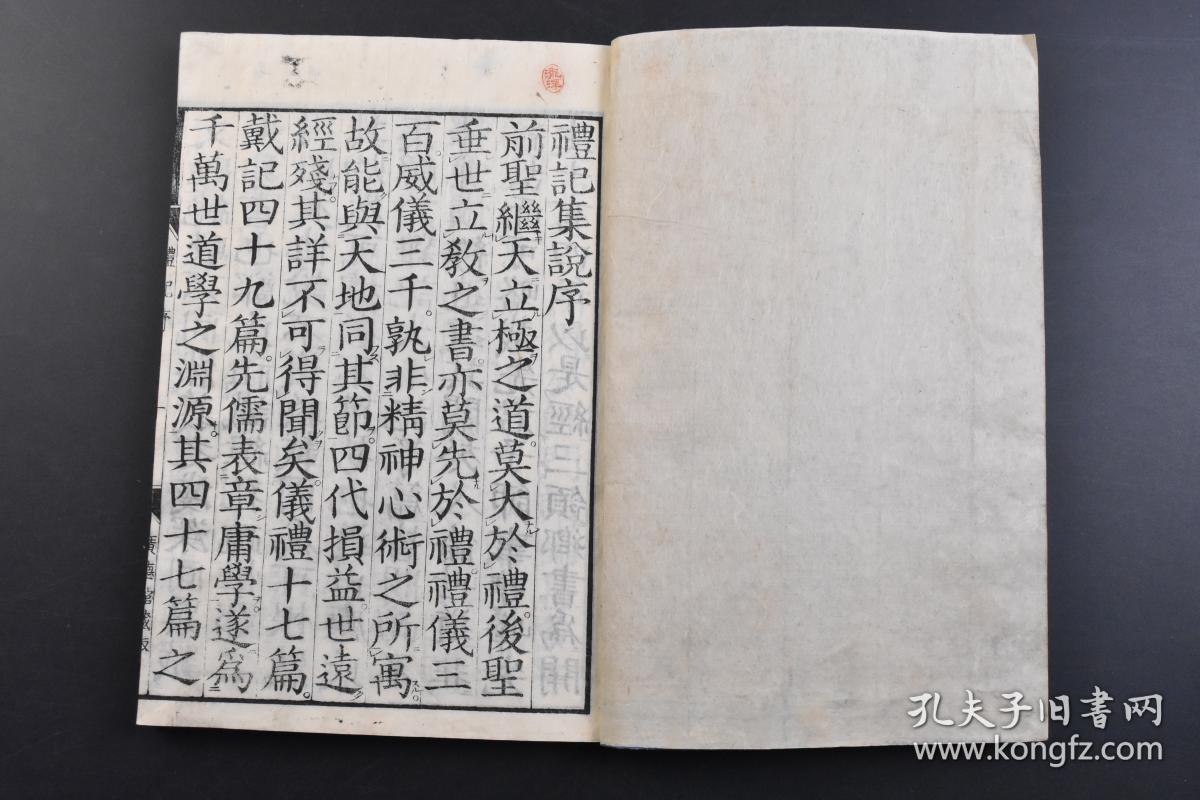 禮記集說序
前聖繼天立極之道。莫大於禮。後聖
垂世立敎之書。亦莫先於禮。禮儀三
百。威儀三千。孰非精神心術之所寓。
故能與天地同其節。四代損益。世遠
經殘。其詳不可得聞矣。儀禮十七篇。
戴記四十九篇。先儒表章庸學。遂爲
千萬世道學之淵源。其四十七篇之
禮記序
藏版
孔夫子旧书网
www.kongfz.com